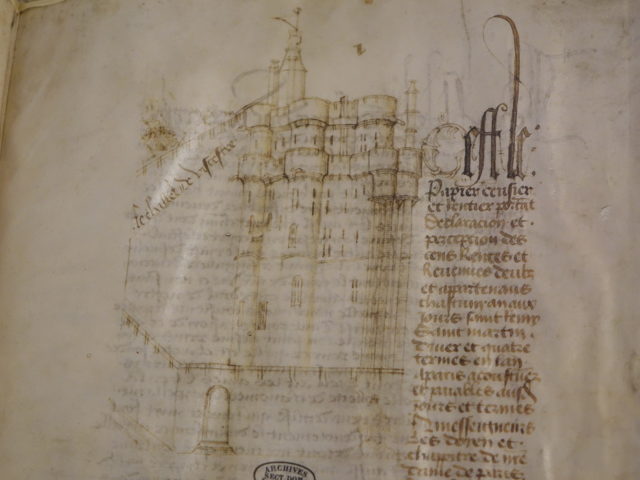 le chastel de
Cest le
Papier censier
et rentier portant
declaracion et
perception des
cens Rentes et
Revenues deubz
et appartenans
chastun an aux
jours saint Remy
Saint martin
Diver et quatre
termes en lan
a paris acoustumez
et paiables ausd
jours et termes
A messeigneurs
les doyen et
chapitre de nre
Dame de paris
ARCHIVES
SECT. DOM